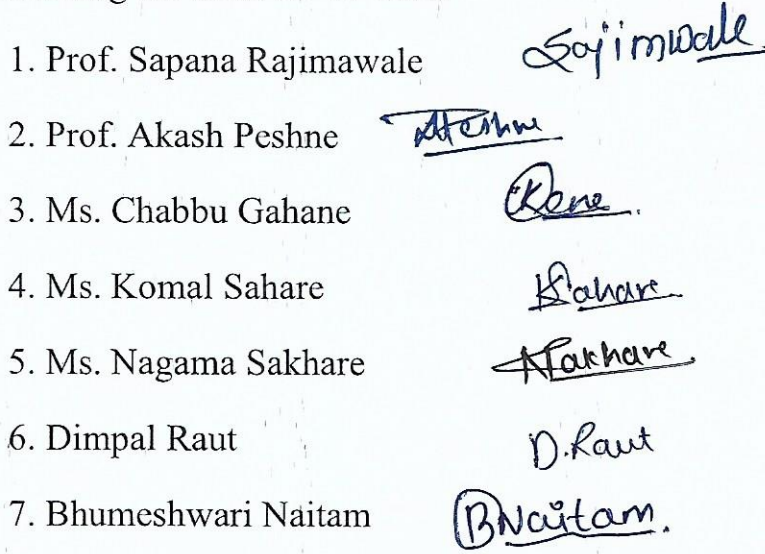 1. Prof. Sapana Rajimawale
2. Prof. Akash Peshne
3. Ms. Chabbu Gahane
4. Ms. Komal Sahare KSahare
5. Ms. Nagama Sakhare NSakhare
6. Dimpal Raut D.Raut
7. Bhumeshwari Naitam BNaitam.